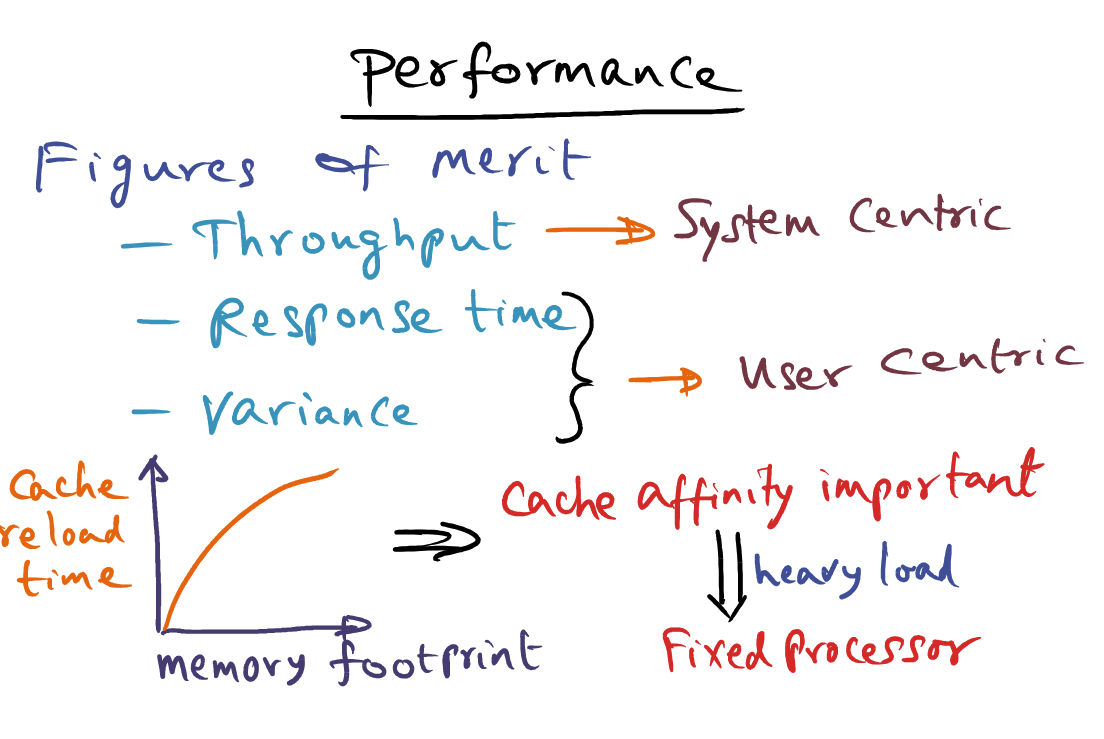 Performance
Figures of merit
- Throughput → System Centric
- Response time
- Variance
→ User Centric
Cache
reload
time
memory footprint
⇒ Cache affinity important
⇓ heavy load
Fixed processor